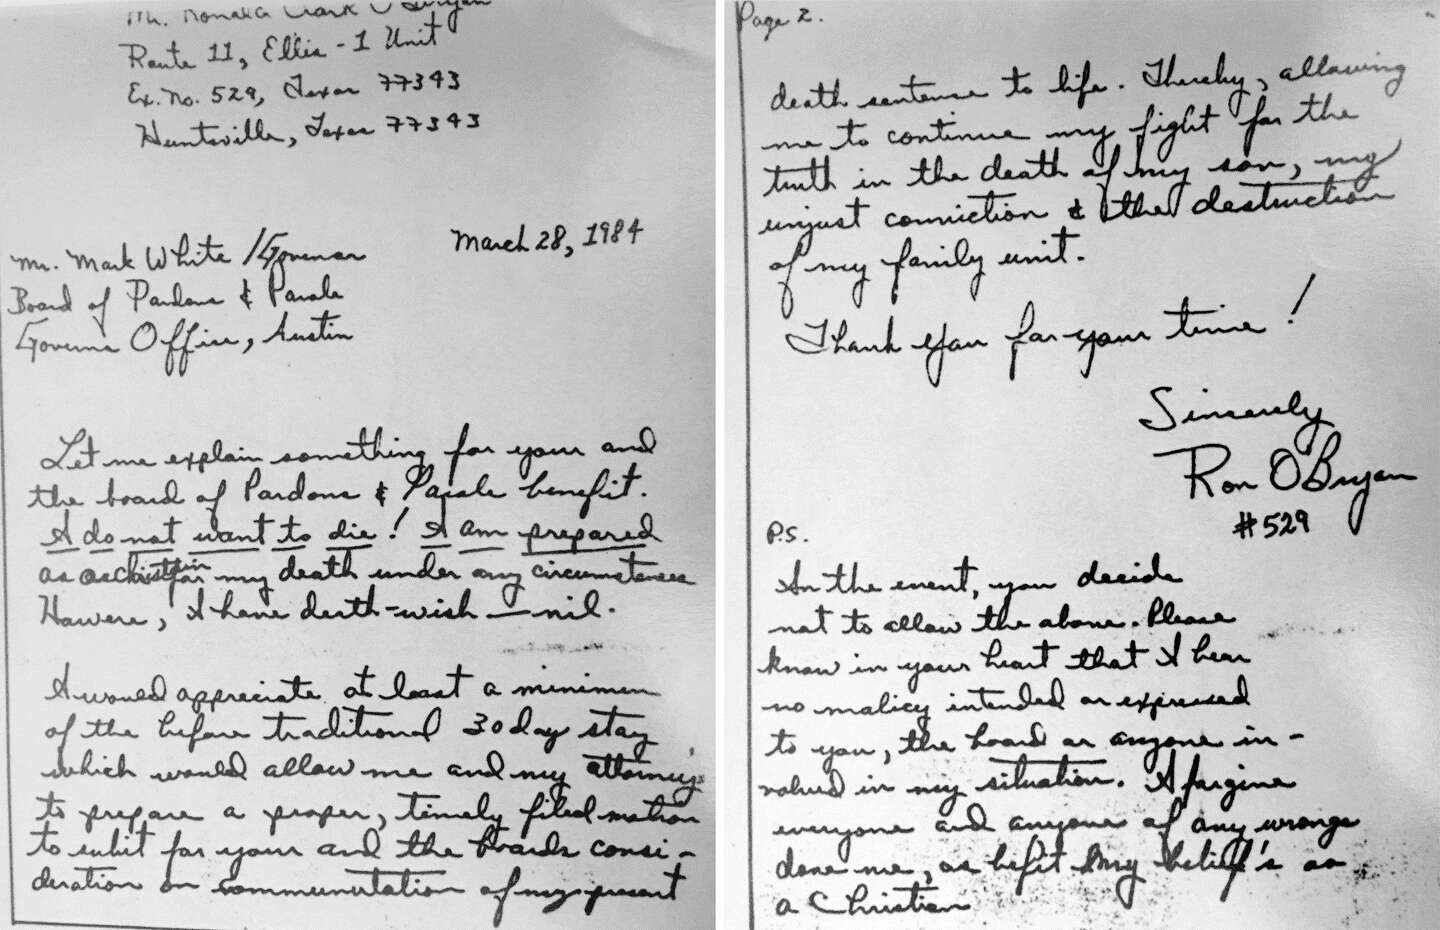 Mr. Ronald Clark O'Bryan
Route 11, Ellis - 1 Unit
Ex. No. 529, Texas 77343
Huntsville, Texas 77343
March 28, 1984
Mr. Mark White / Governor
Board of Pardons & Parole
Governs Office, Austin
Let me explain something for your and
the board of Pardons & Parole benefit.
I do not want to die! I am prepared
as a Christian for my death under any circumstances
Howere, I have derth-wish — nil.
I would appreciate at least a minimum
of the before traditional 30 day stay
which would allow me and my attorney
to prepare a proper, timely filed motion
to subit for your and the boards consi-
deration on commumutation of my present
Page 2.
death sentense to life. Thereby, allowing
me to continue my fight for the
truth in the death of my son, my
unjust conviction & the destruction
of my family unit.
Thank you for your time!
Sincerely
Ron O'Bryan
#529
P.S.
In the event, you decide
not to allow the above. Please
know in your heart that I bear
no malicy intended or expressed
to you, the board or anyone in-
volved in my situation. I forgive
everyone and anyone of any wrongs
done me, as befit my belief's as
a Christian